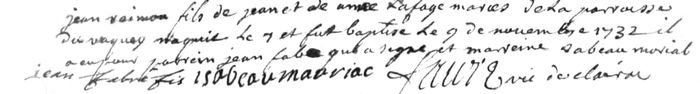 jean raimon fils de jean et de anne Lafage maries de La parroisse
du naquit le 7 et fut baptise le 9 de nouembre 1732 il
a eu pour parrein jean fabe qui a signe et marreine isabeau moriac
jean fabre fis isabeau maauriac FAURE vic de